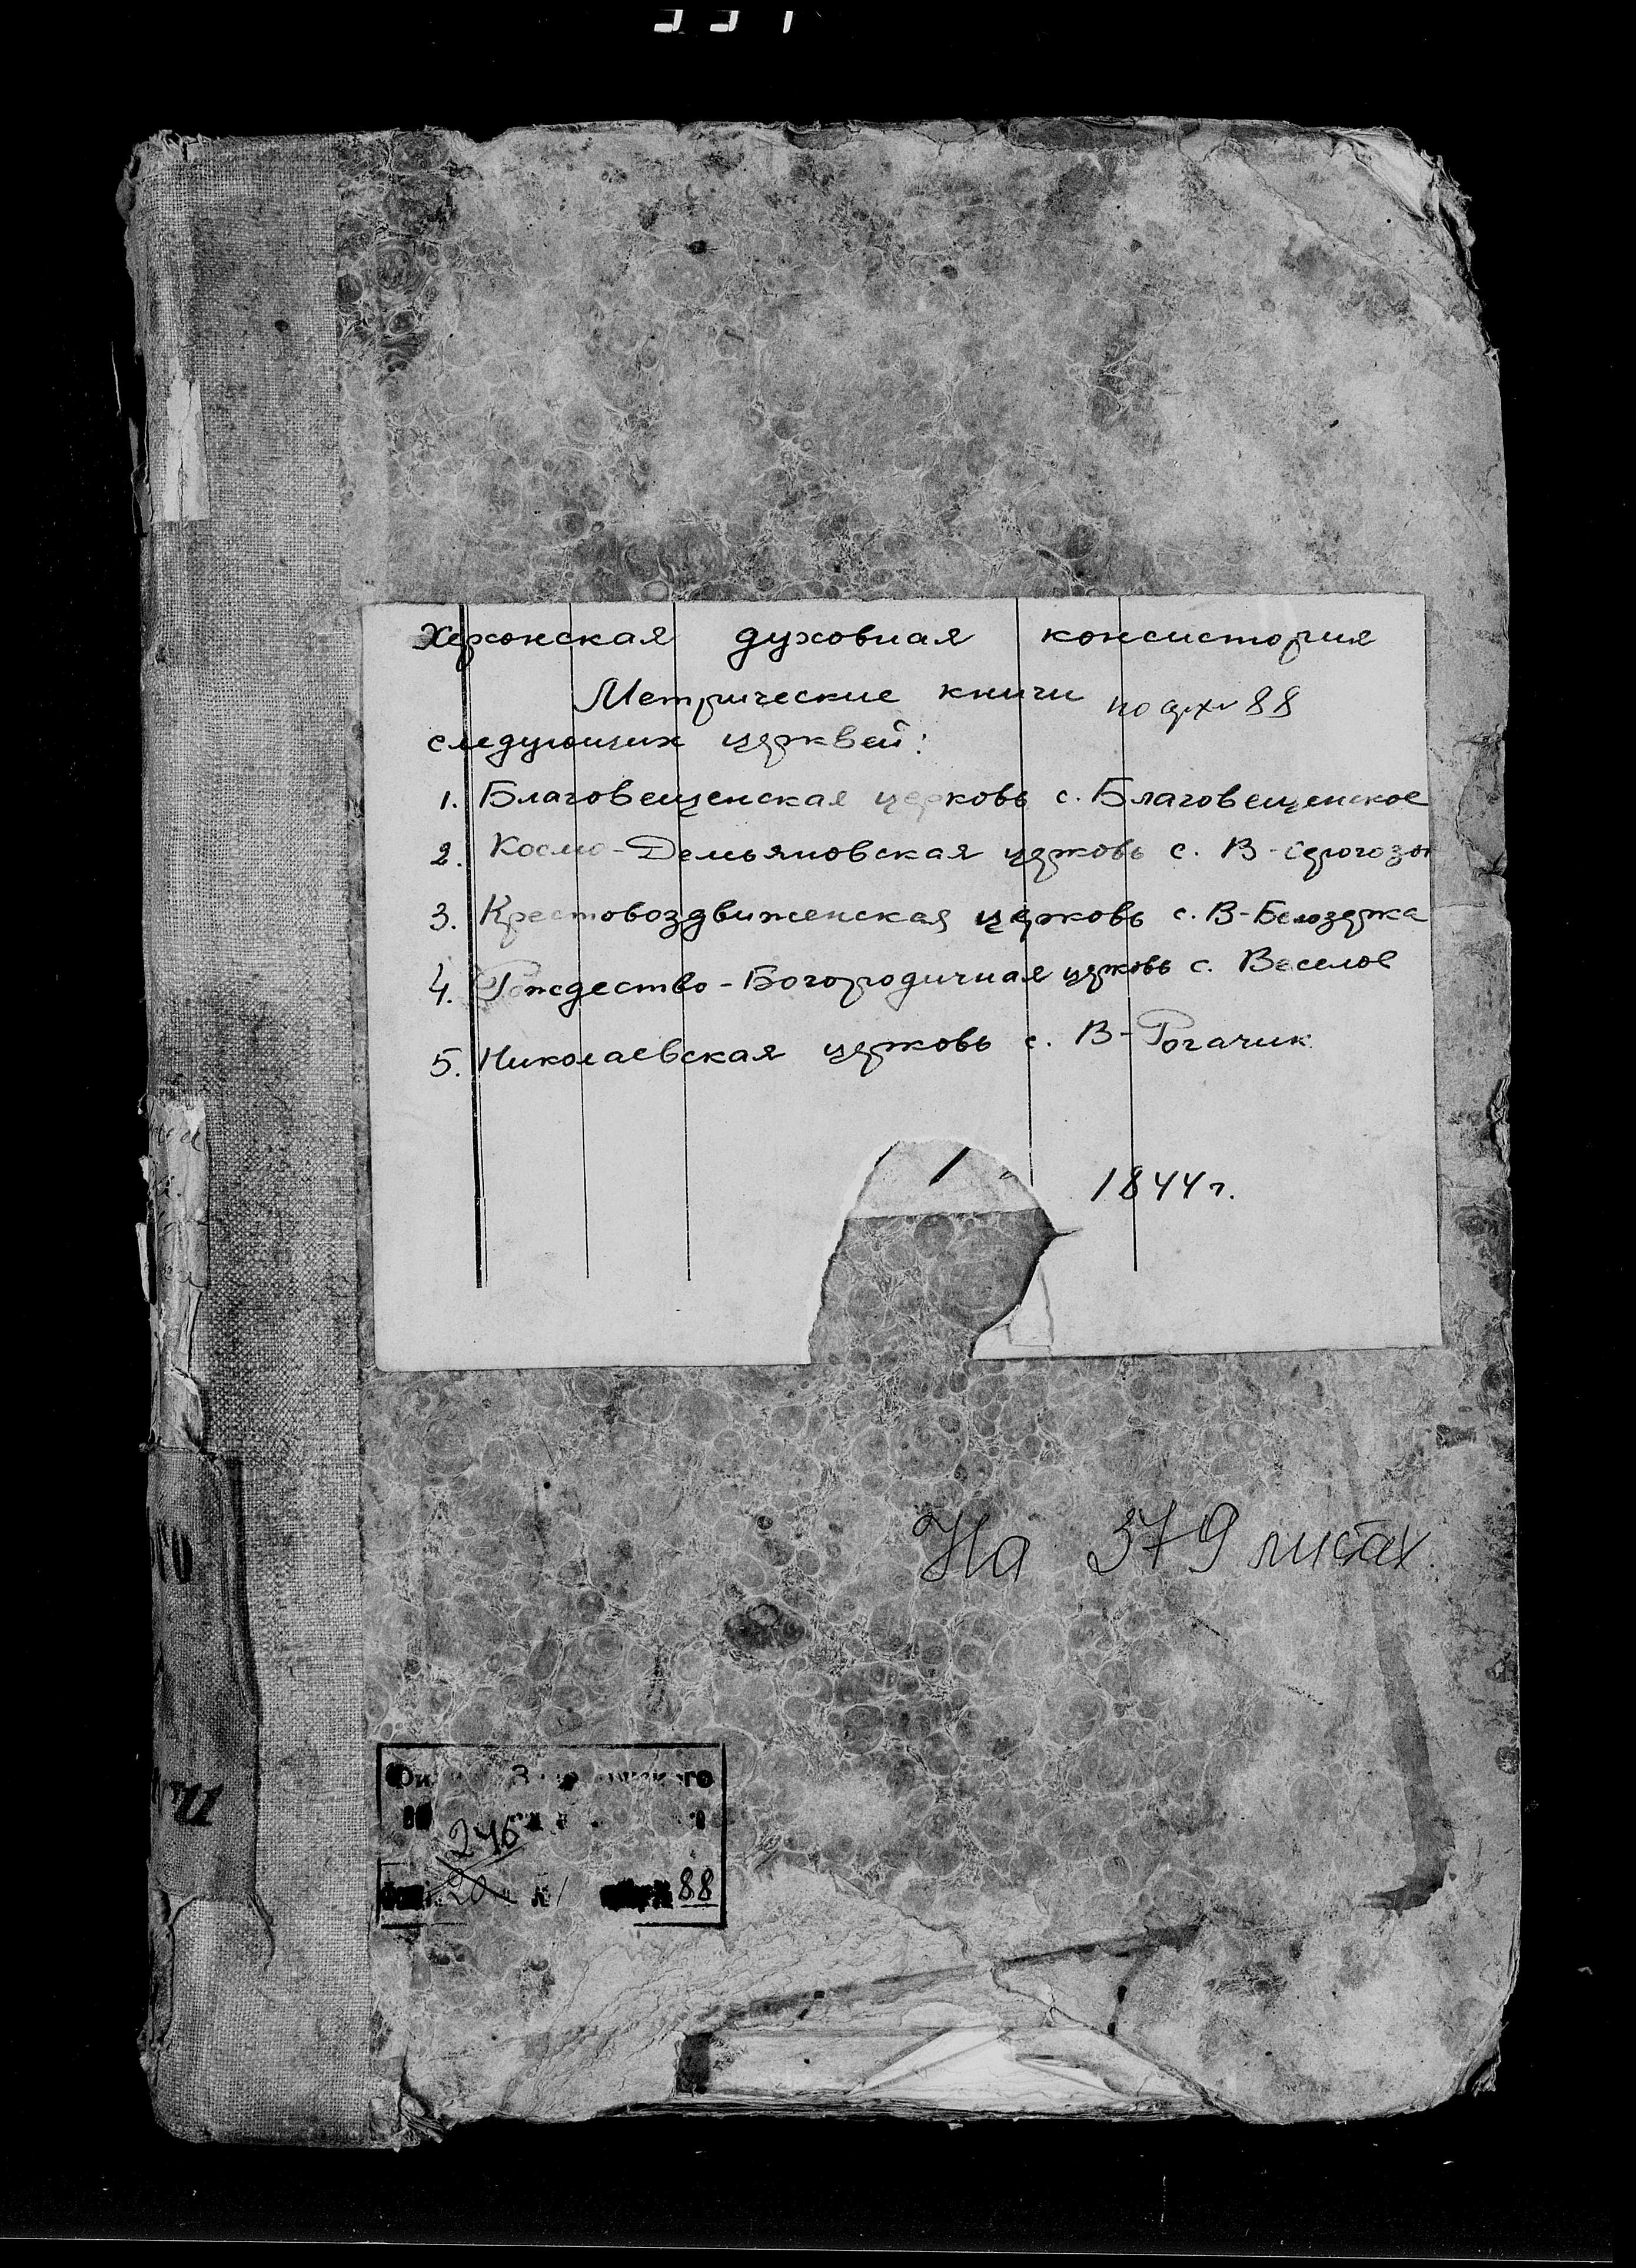 Херсонская духовная консистория
Метрические книги по арх 88
следующих церквей:
1. Благовещенская церковь с. Благовещенское
2. Космо-Демьяновская церковь с. В-Серогозы
3. Крестовоздвиженская церковь с. В-Белозерка
4. Рождество-Богородичная церковь с. Веселое
5. Николаевская церковь с. В-Рогачик
1844 г.
На 379 листах
246
20
88